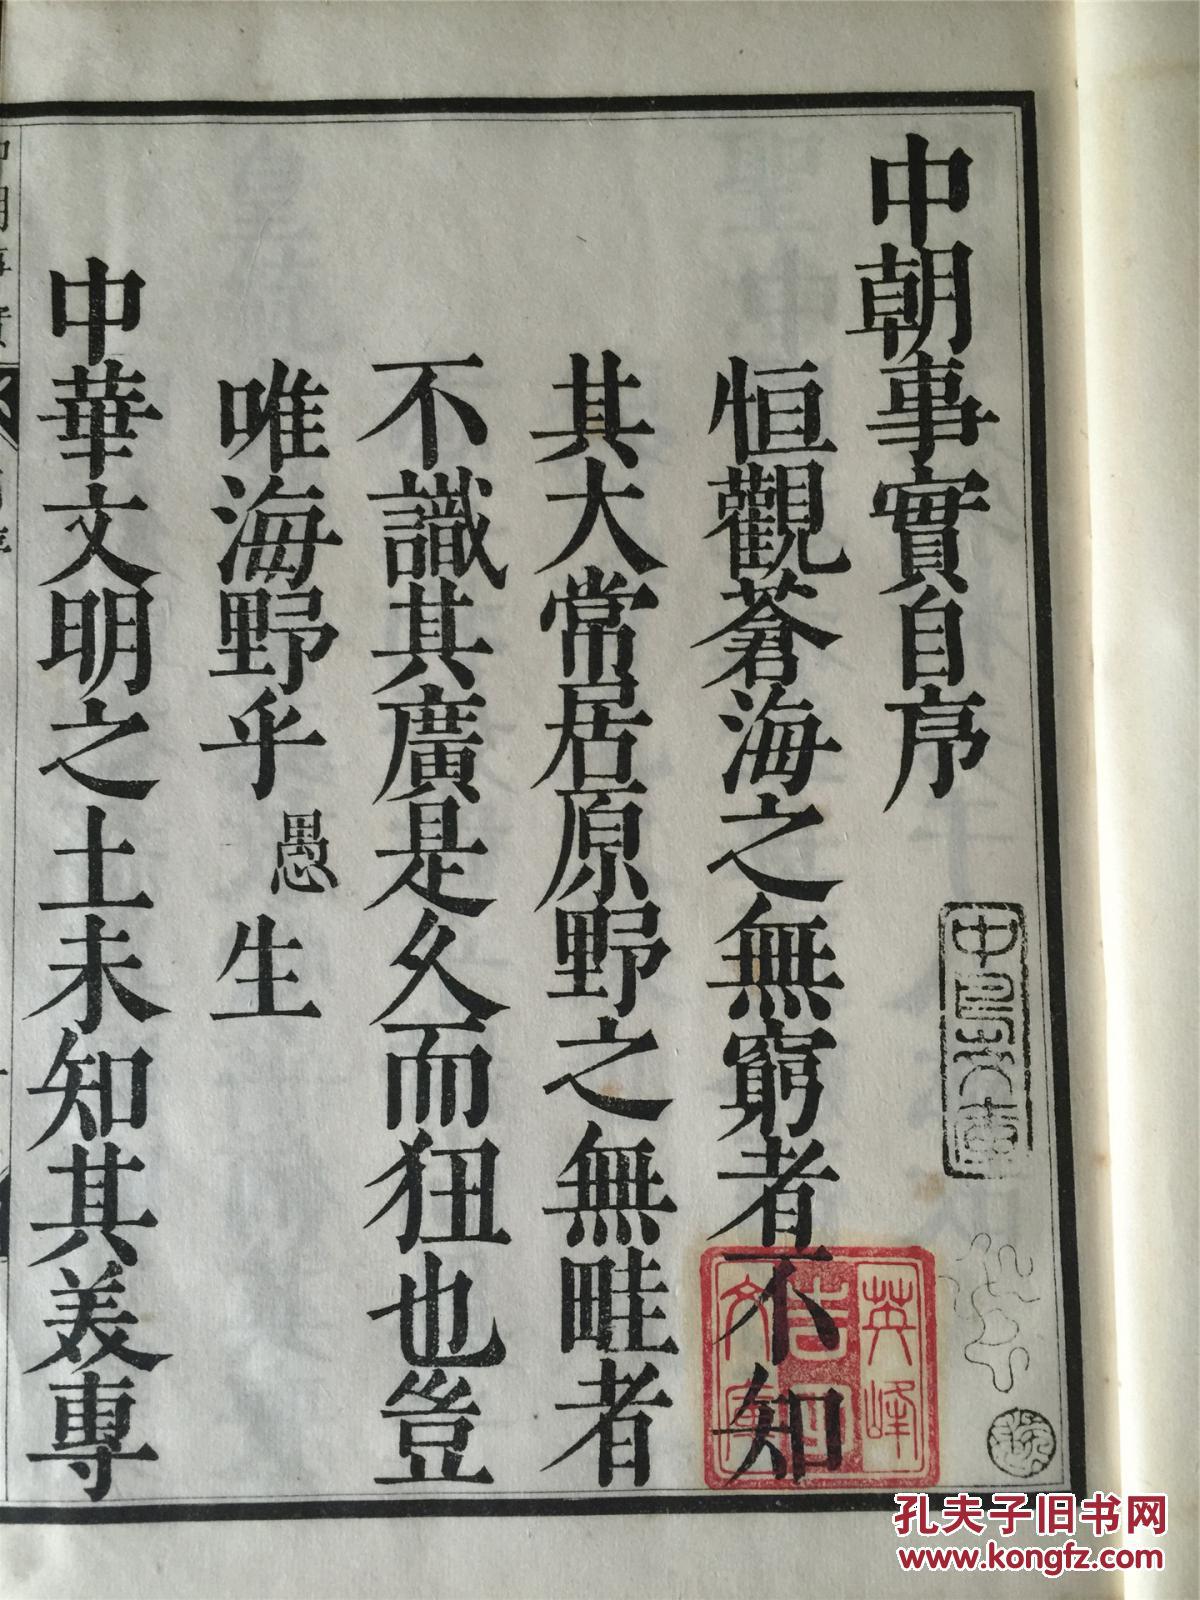 中朝事實自序
恒觀蒼海之無窮者不知
其大常居原野之無畦者
不識其廣是久而狃也豈
唯海野乎愚生
中華文明之土未知其美專
英峰
吉田
文庫
孔夫子旧书网
www.kongfz.com